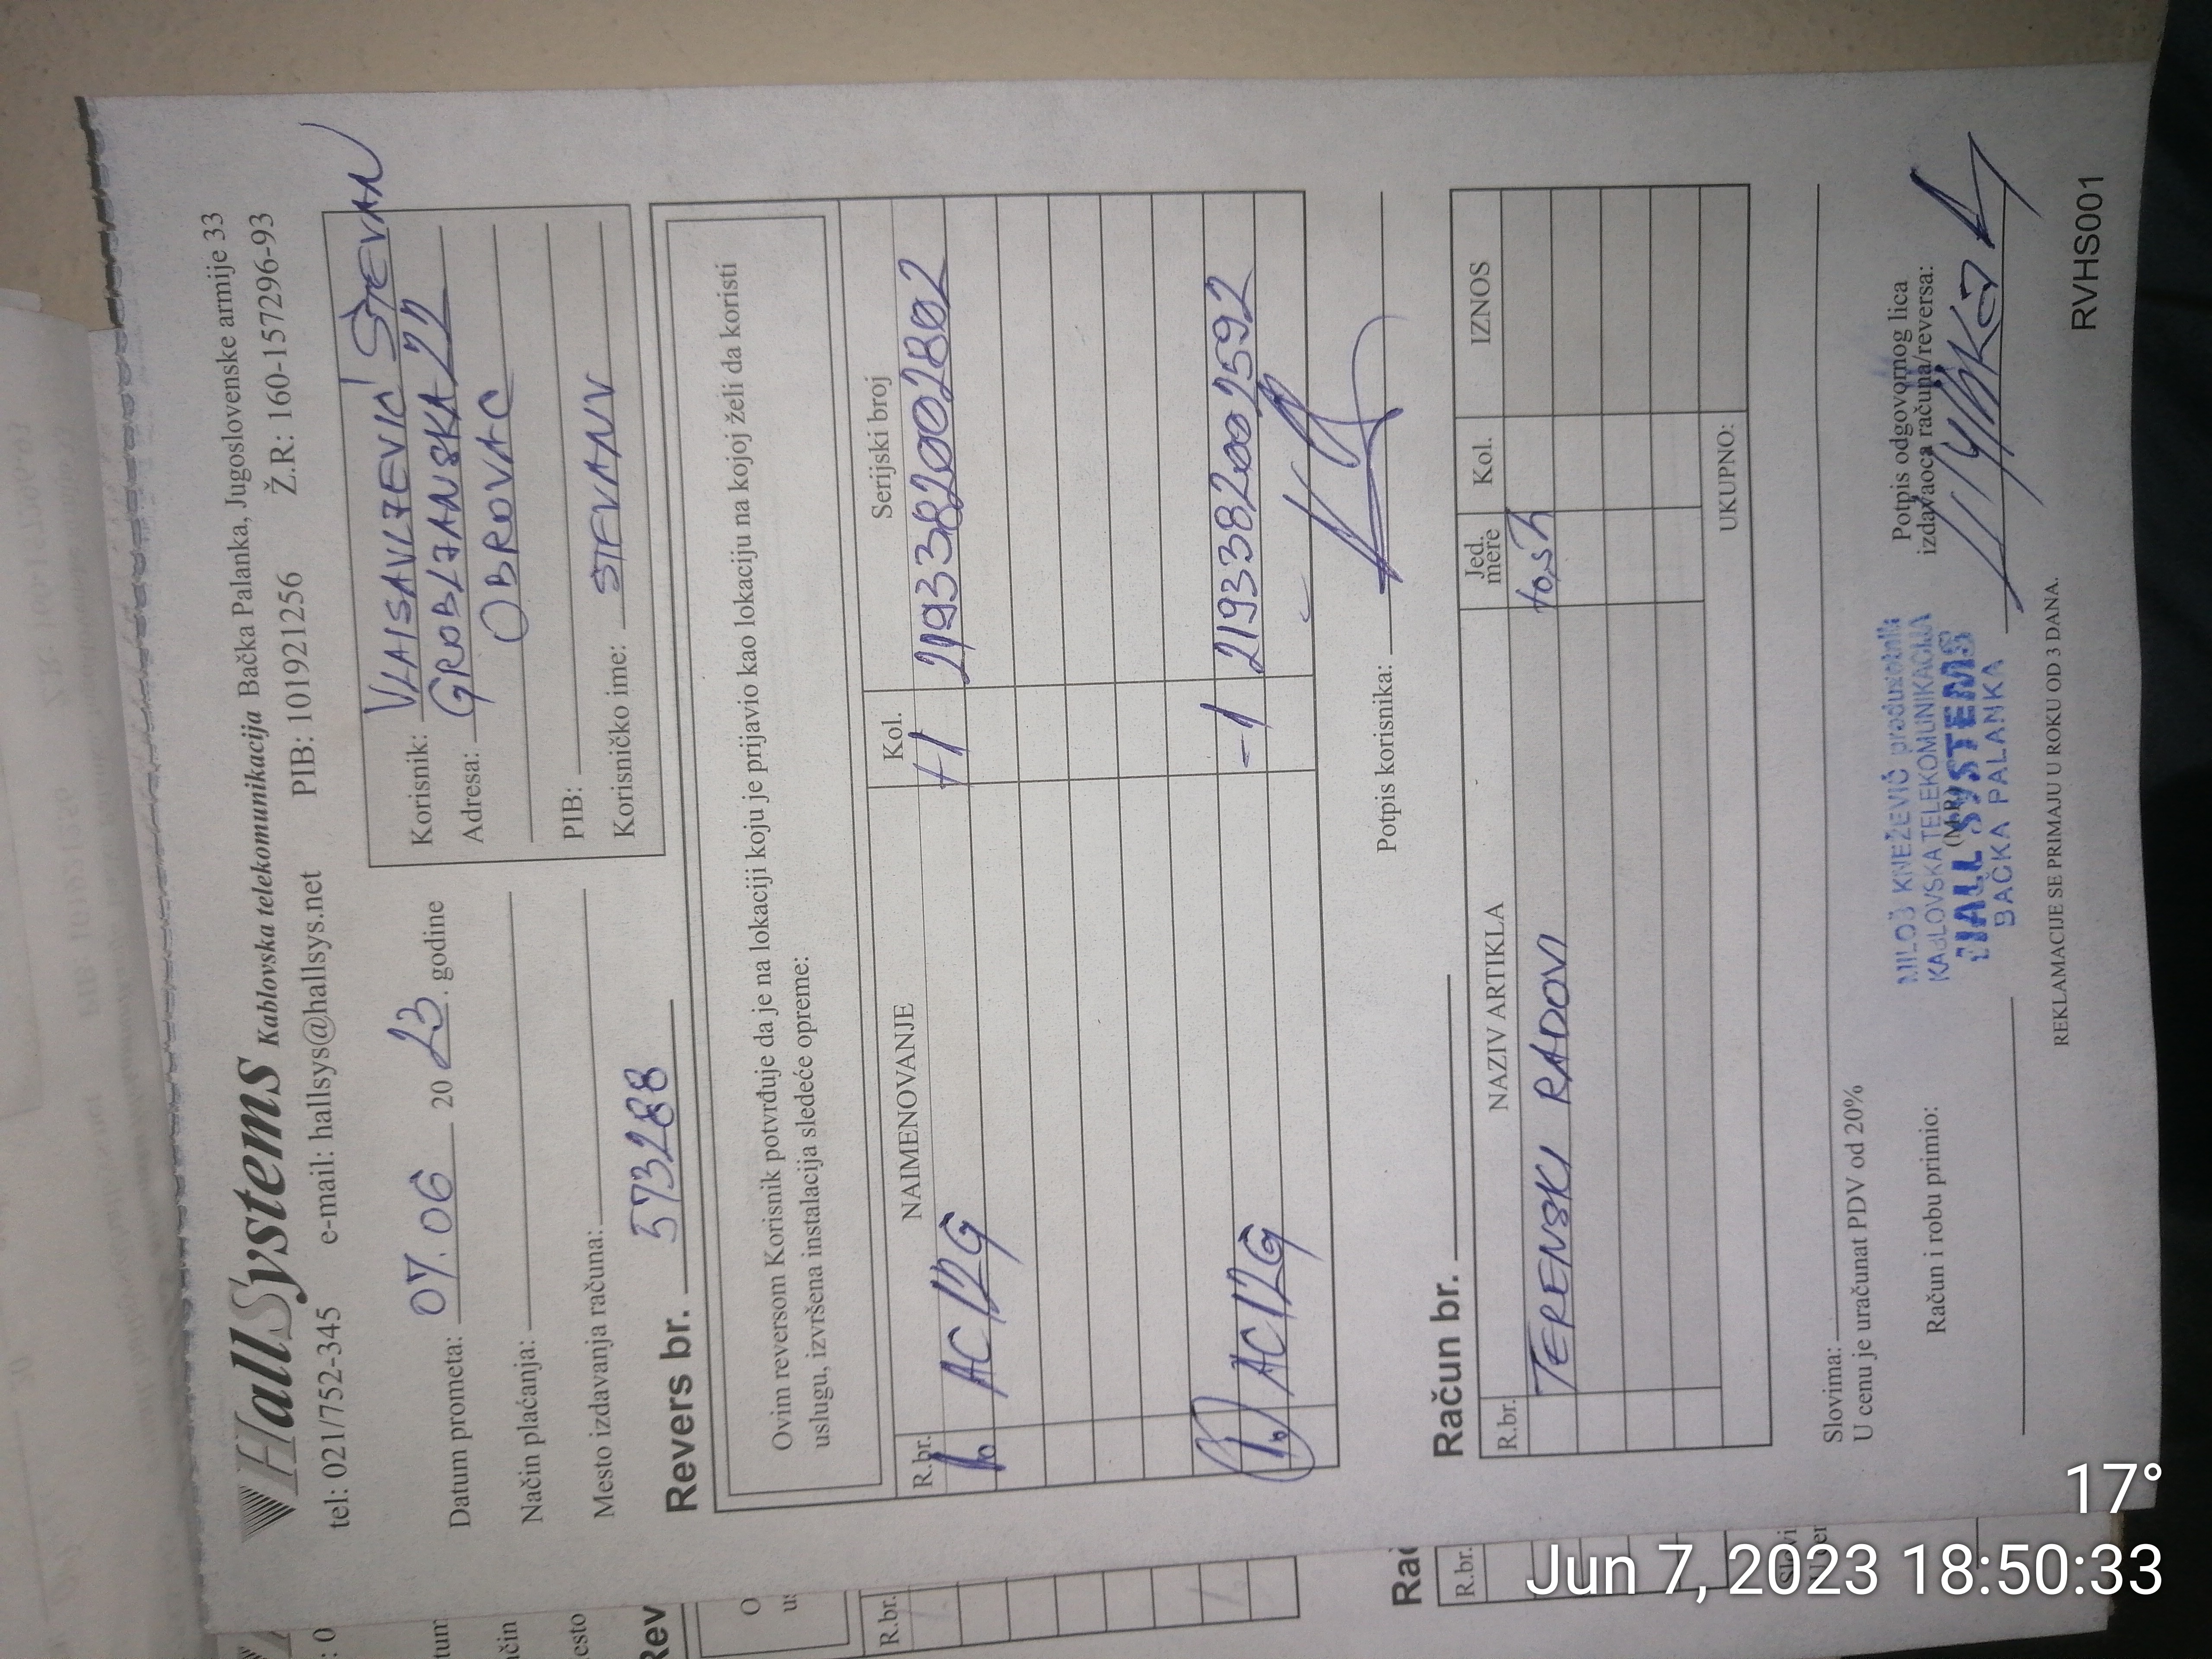 HallSystems Kablovska telekomunikacija Bačka Palanka, Jugoslovenske armije 33
tel: 021/752-345 e-mail: hallsys@hallsys.net PIB: 101921256 Ž.R: 160-157296-93
Datum prometa: 07.06 2023. godine
Način plaćanja:
Mesto izdavanja računa:
Korisnik: VLAISAVLJEVIĆ STEVAN
Adresa: GROBLJANSKA 22
OBROVAC
PIB:
Korisničko ime: STEVANV
Revers br. 573288
Ovim reversom Korisnik potvrđuje da je na lokaciji koju je prijavio kao lokaciju na kojoj želi da koristi
uslugu, izvršena instalacija sledeće opreme:
R.br. NAIMENOVANJE Kol. Serijski broj
1. AC12G +1 2193382002802
1. AC12G -1 2193382002592
Potpis korisnika:
Račun br.
R.br. NAZIV ARTIKLA Jed. mere Kol. IZNOS
TERENSKI RADOVI
UKUPNO:
Slovima:
U cenu je uračunat PDV od 20%
Račun i robu primio:
(M.P.)
Potpis odgovornog lica
izdavaoca računa/reversa:
MILOŠ KNEŽEVIĆ preduzetnik
KABLOVSKA TELEKOMUNIKACIJA
HALL SYSTEMS
BAČKA PALANKA
REKLAMACIJE SE PRIMAJU U ROKU OD 3 DANA.
RVHS001
Rev
R.br.
Rač
R.br.
17°
Jun 7, 2023 18:50:33